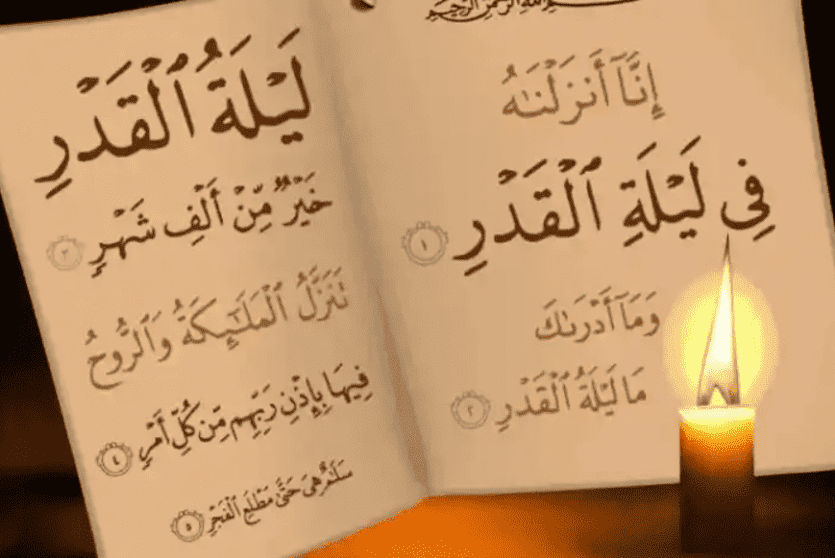 بِسْمِ ٱللَّهِ ٱلرَّحْمَٰنِ ٱلرَّحِيمِ
إِنَّآ أَنزَلْنَٰهُ
فِى لَيْلَةِ ٱلْقَدْرِ ١
وَمَآ أَدْرَىٰكَ
مَا لَيْلَةُ ٱلْقَدْرِ ٢
لَيْلَةُ ٱلْقَدْرِ
خَيْرٌ مِّنْ أَلْفِ شَهْرٍ ٣
تَنَزَّلُ ٱلْمَلَٰٓئِكَةُ وَٱلرُّوحُ
فِيهَا بِإِذْنِ رَبِّهِم مِّن كُلِّ أَمْرٍ ٤
سَلَٰمٌ هِىَ حَتَّىٰ مَطْلَعِ ٱلْفَجْرِ ٥